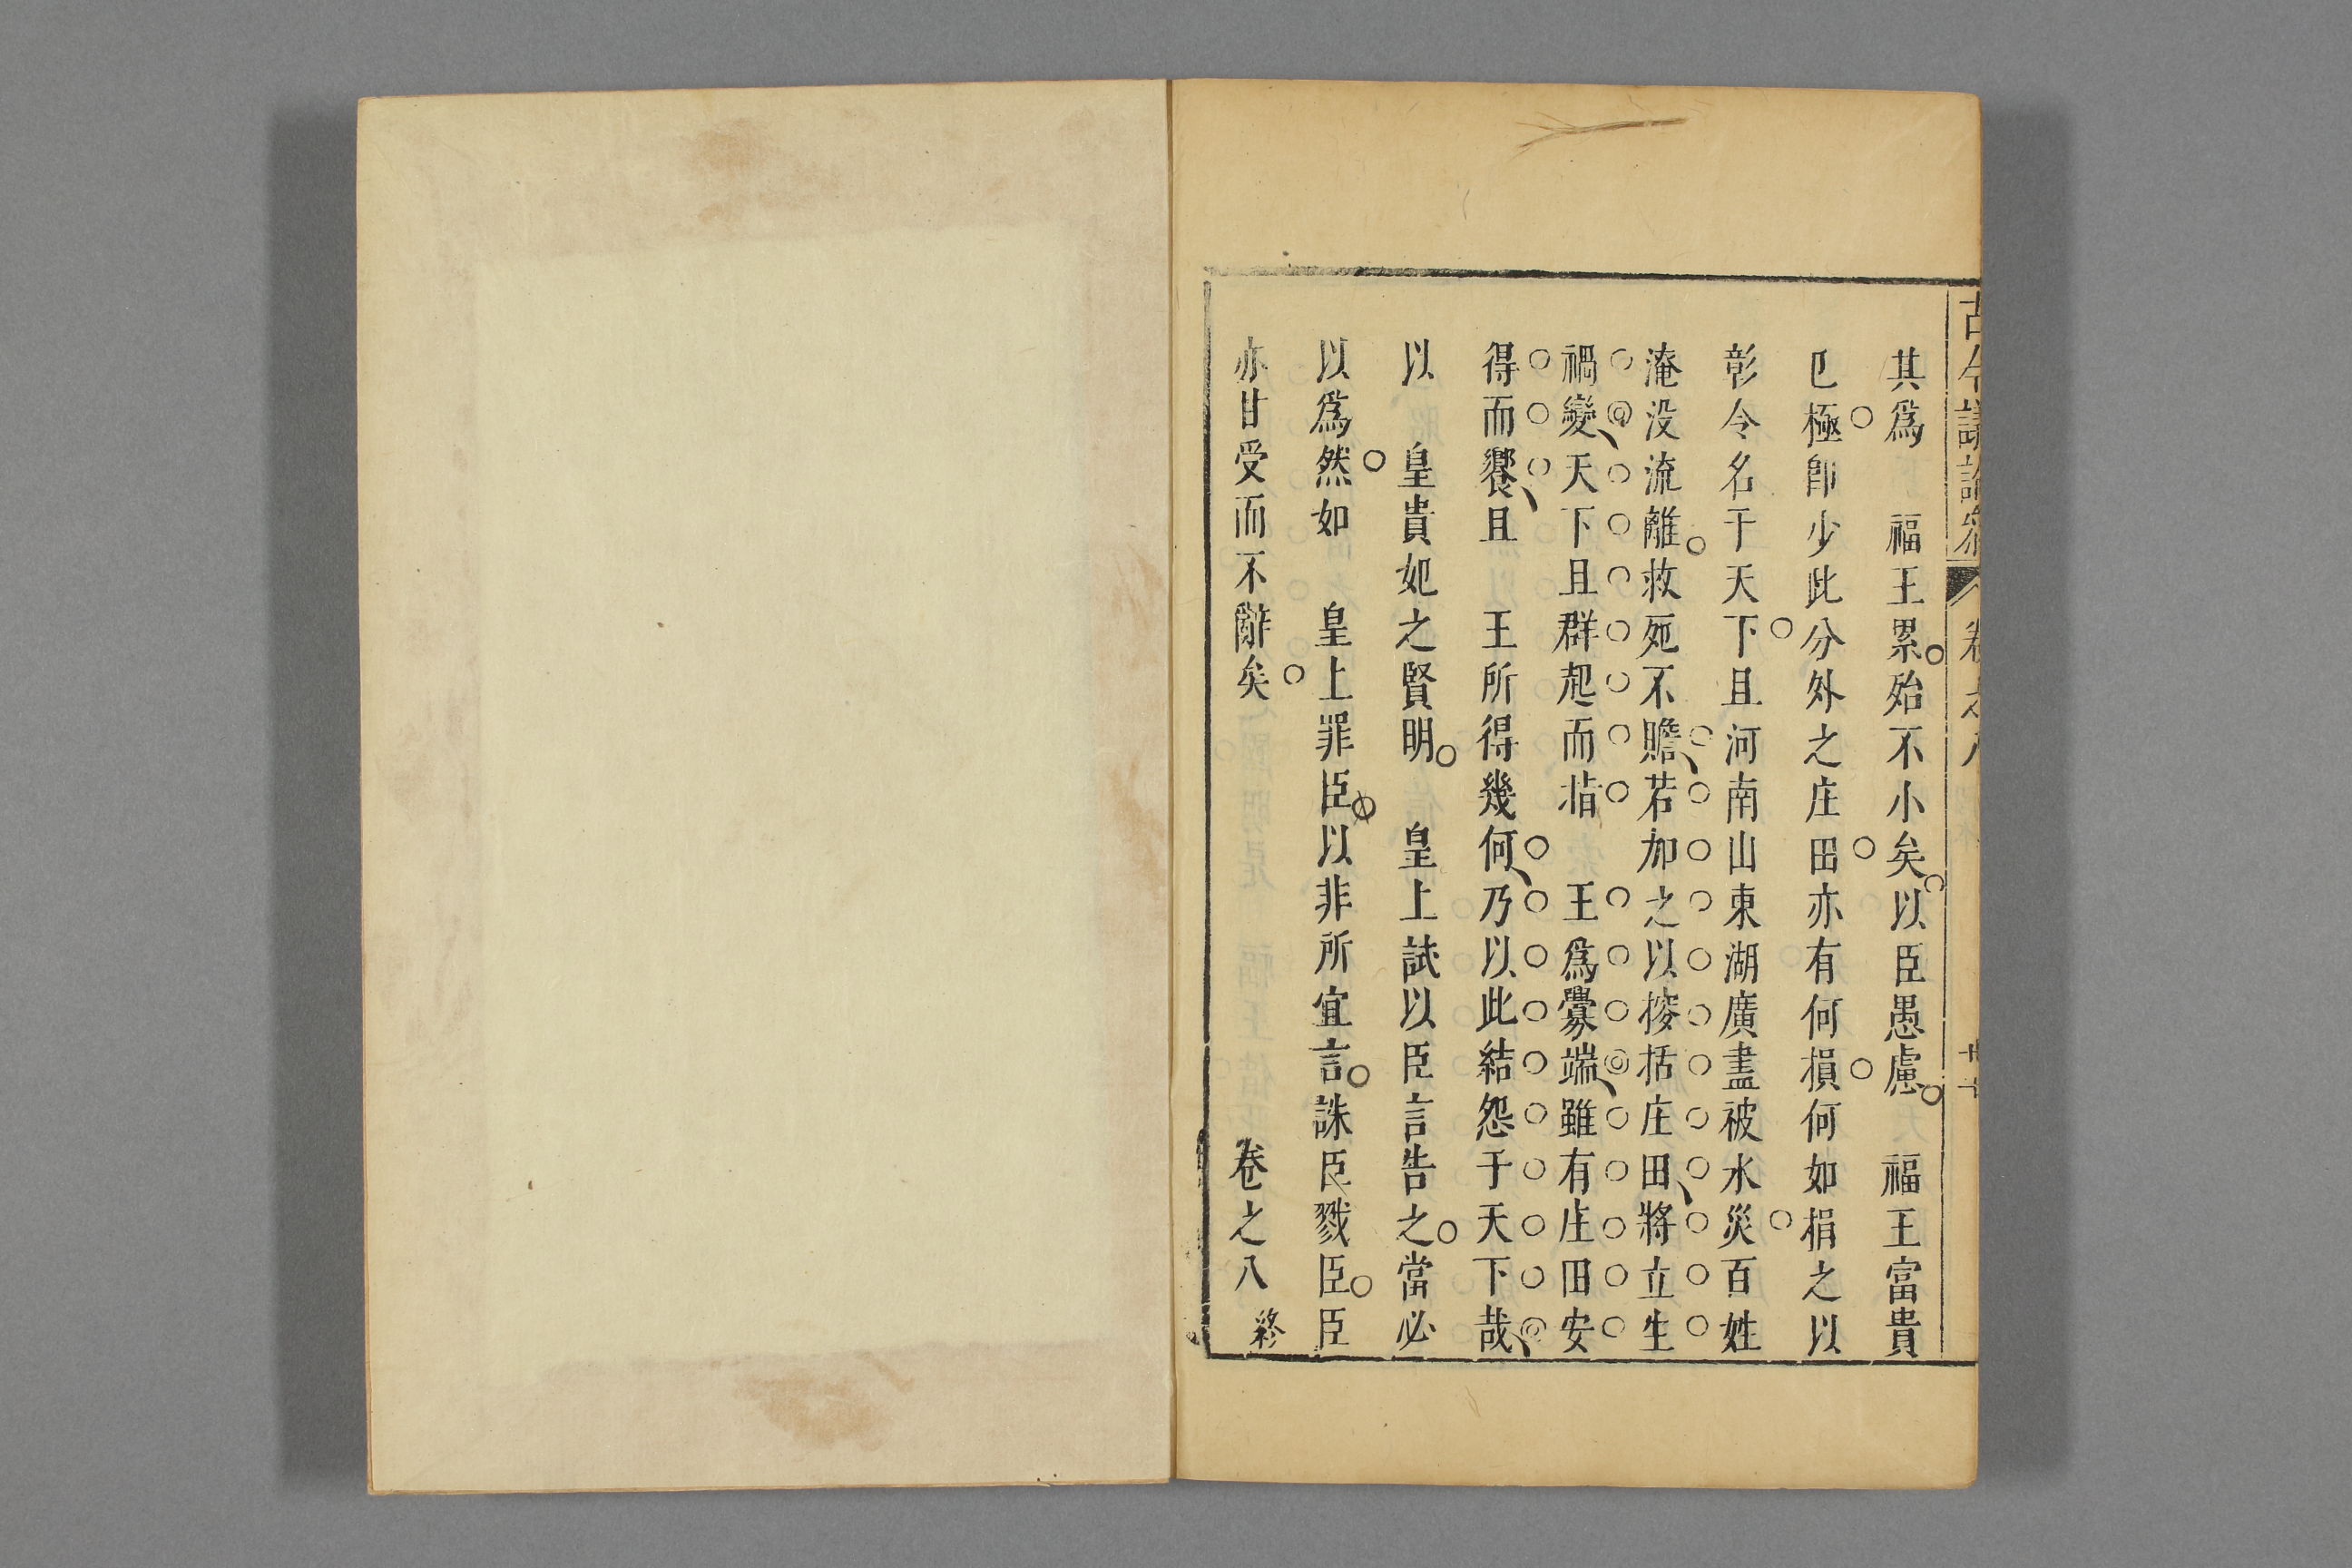 古今議論參 卷之八
其爲 福王累殆不小矣以臣愚慮 福王富貴
已極卽少此分外之庄田亦有何損何如捐之以
彰令名于天下且河南山東湖廣盡被水災百姓
淹没流離救死不贍若加之以搜括庄田將立生
禍變天下且群起而指 王爲釁端雖有庄田安
得而饗且 王所得幾何乃以此結怨于天下哉
以 皇貴妃之賢明 皇上試以臣言告之當必
以爲然如 皇上罪臣以非所宜言誅臣戮臣臣
亦甘受而不辭矣 卷之八 終